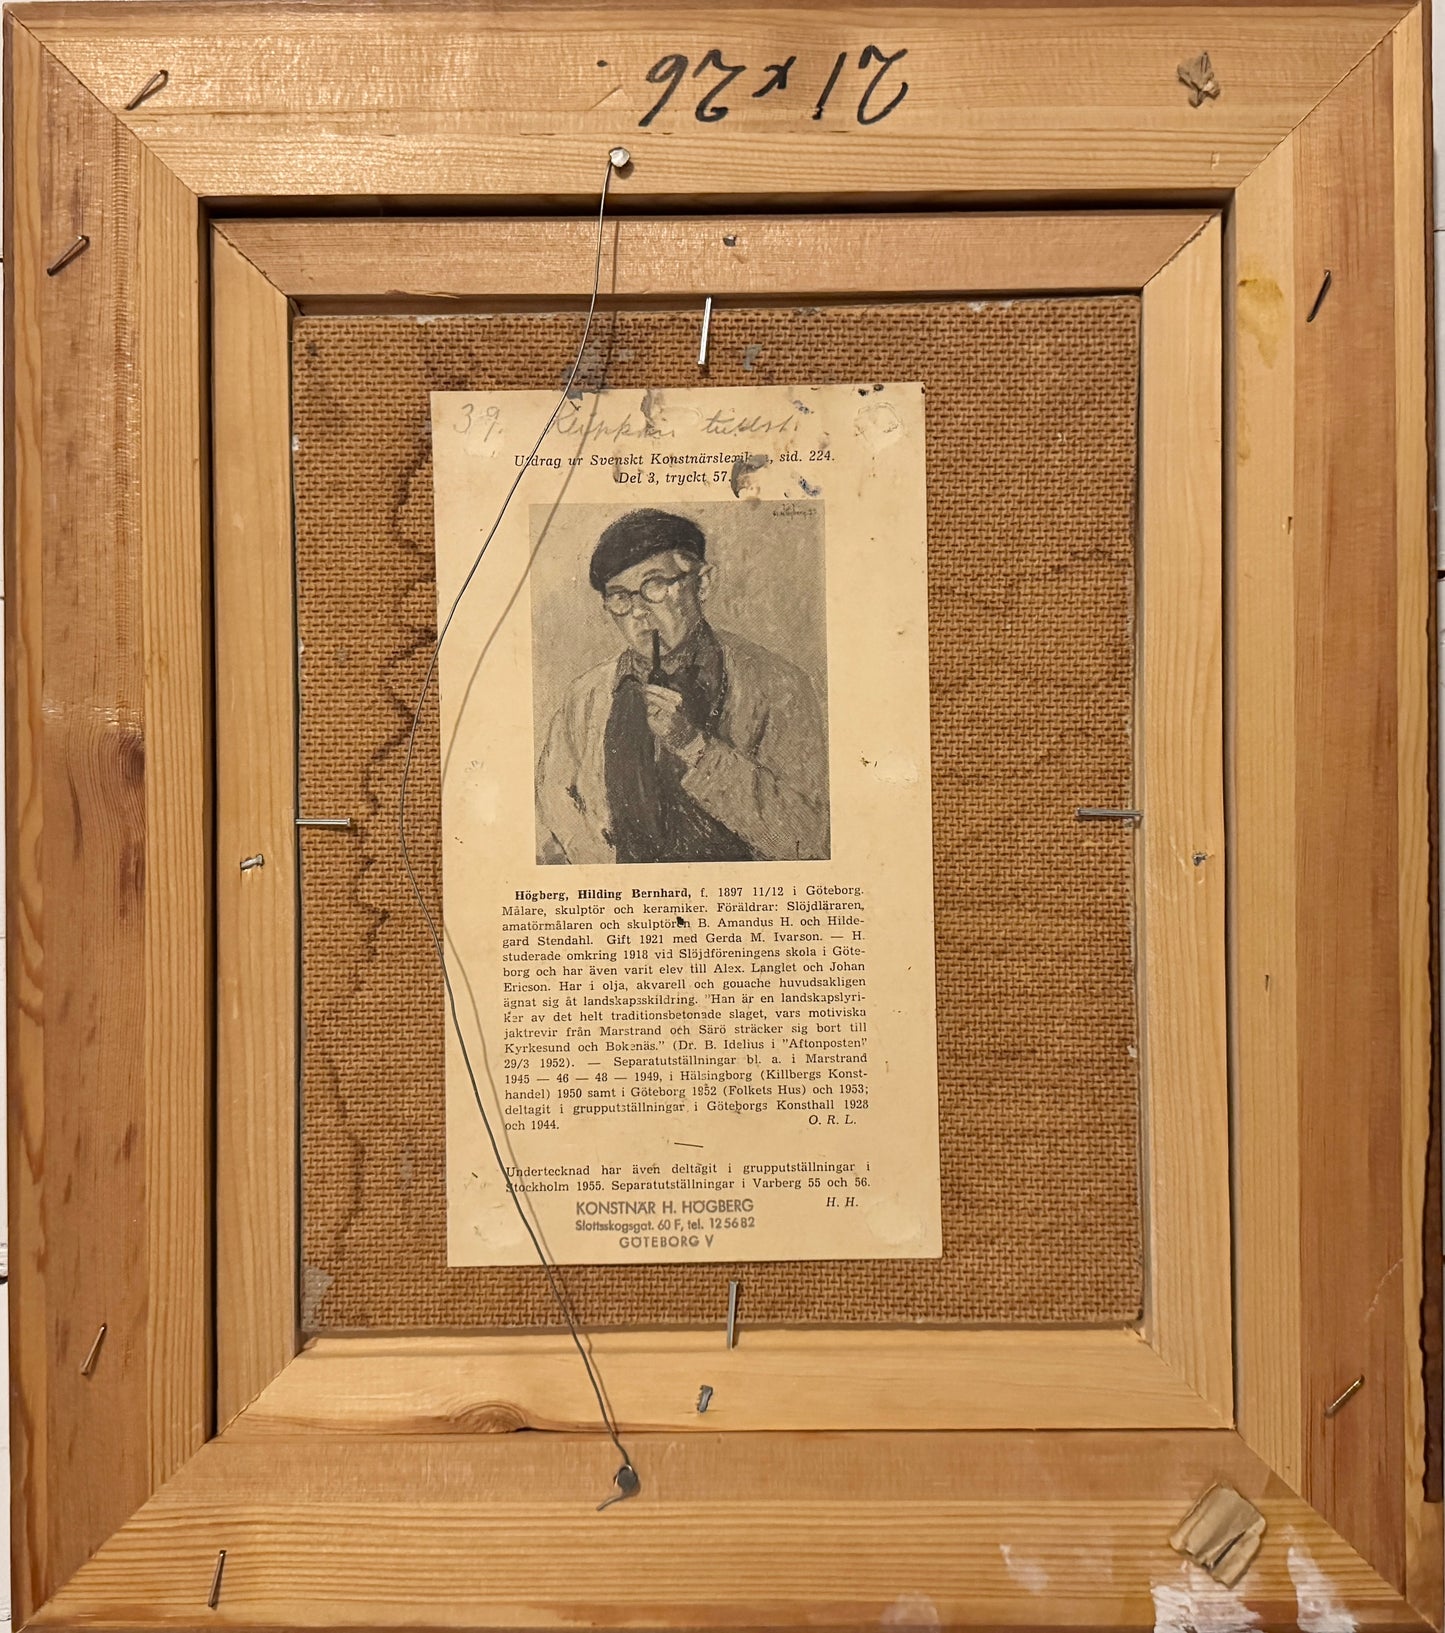 21 x 26
39.
Utdrag ur Svenskt Konstnärslexikon, sid. 224.
Del 3, tryckt 57.
Högberg, Hilding Bernhard, f. 1897 11/12 i Göteborg.
Målare, skulptör och keramiker. Föräldrar: Slöjdläraren,
amatörmålaren och skulptören B. Amandus H. och Hilde-
gard Stendahl. Gift 1921 med Gerda M. Ivarson. — H.
studerade omkring 1918 vid Slöjdföreningens skola i Göte-
borg och har även varit elev till Alex. Langlet och Johan
Ericson. Har i olja, akvarell och gouache huvudsakligen
ägnat sig åt landskapsskildring. "Han är en landskapslyri-
ker av det helt traditionsbetonade slaget, vars motiviska
jaktrevir från Marstrand och Särö sträcker sig bort till
Kyrkesund och Bokenäs." (Dr. B. Idelius i "Aftonposten"
29/3 1952). — Separatutställningar bl. a. i Marstrand
1945 — 46 — 48 — 1949, i Hälsingborg (Killbergs Konst-
handel) 1950 samt i Göteborg 1952 (Folkets Hus) och 1953;
deltagit i grupputställningar i Göteborgs Konsthall 1928
och 1944. O. R. L.
Undertecknad har även deltagit i grupputställningar i
Stockholm 1955. Separatutställningar i Varberg 55 och 56.
H. H.
KONSTNÄR H. HÖGBERG
Slottsskogsgat. 60 F, tel. 12 56 82
GÖTEBORG V